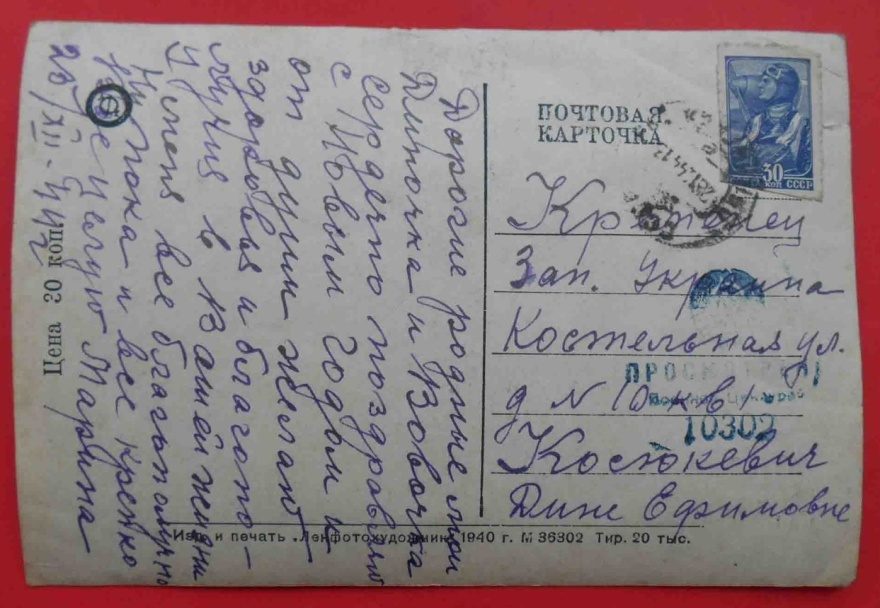 Дорогие родные мои
Диночка и Вовочка
сердечно поздравляю
с Новым Годом и
от души желаю
здоровья и благопо-
лучия в Вашей жизни
У меня все благополучно
Ну пока и все крепко
целую Марина
28/XII-44г
Цена 20 коп.
ПОЧТОВАЯ
КАРТОЧКА
30
КОП СССР
Зап. Украина
Костельная ул.
д N 10 кв 1
ПРОСМОТРЕНО
Военной Цензурой
10302
Косюкевич
Дине Ефимовне
Изд. и печать „Ленфотохудожник" 1940 г. М 36302 Тир. 20 тыс.